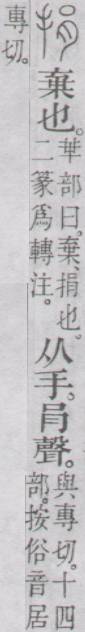 捐 棄也。𠦒部曰。棄、捐也。二篆爲轉注。从手。肙聲。與專切。十四部。按俗音居
專切。